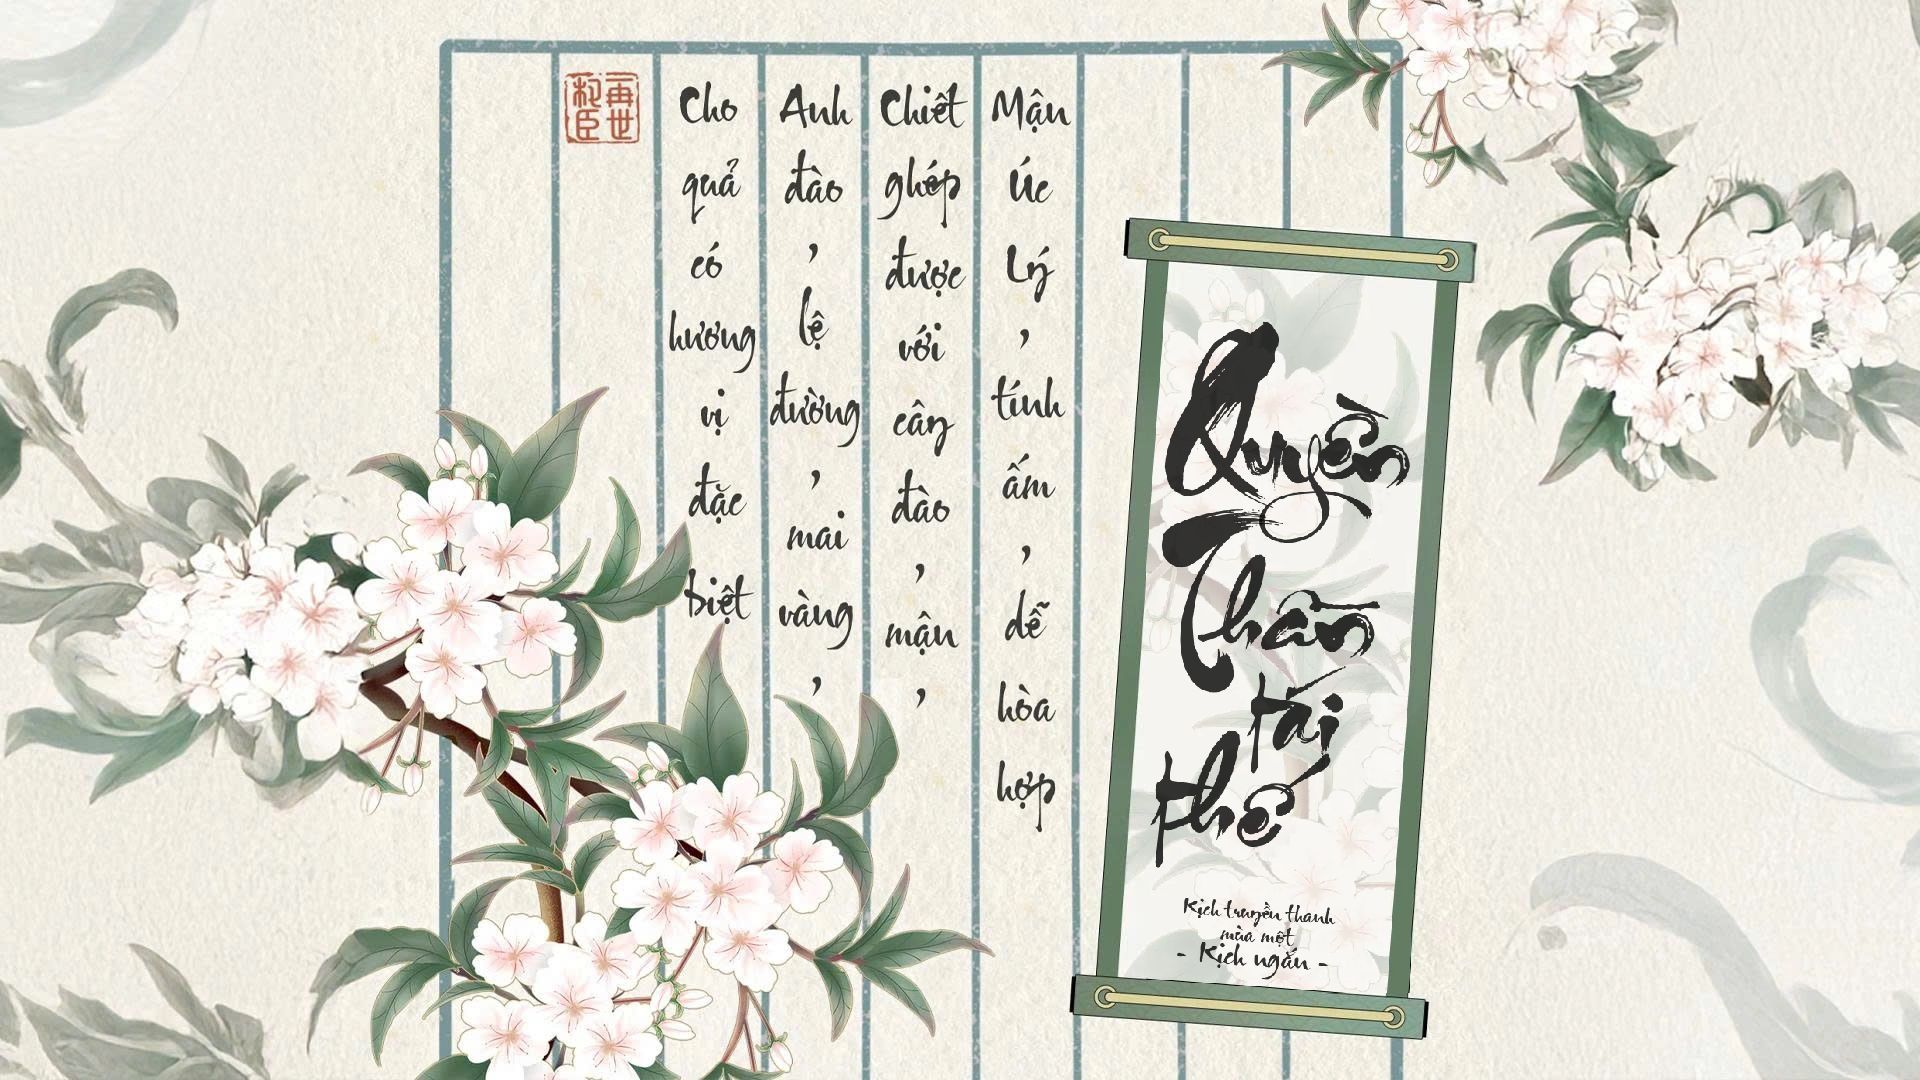 Quyền
Thần
tái
thế
Kịch truyền thanh
mùa một
- Kịch ngắn -
Mận Úc Lý, tính ấm, dễ hòa hợp
Chiết ghép được với cây đào, mận,
Anh đào, lệ đường, mai vàng,
Cho quả có hương vị đặc biệt
再世
权臣